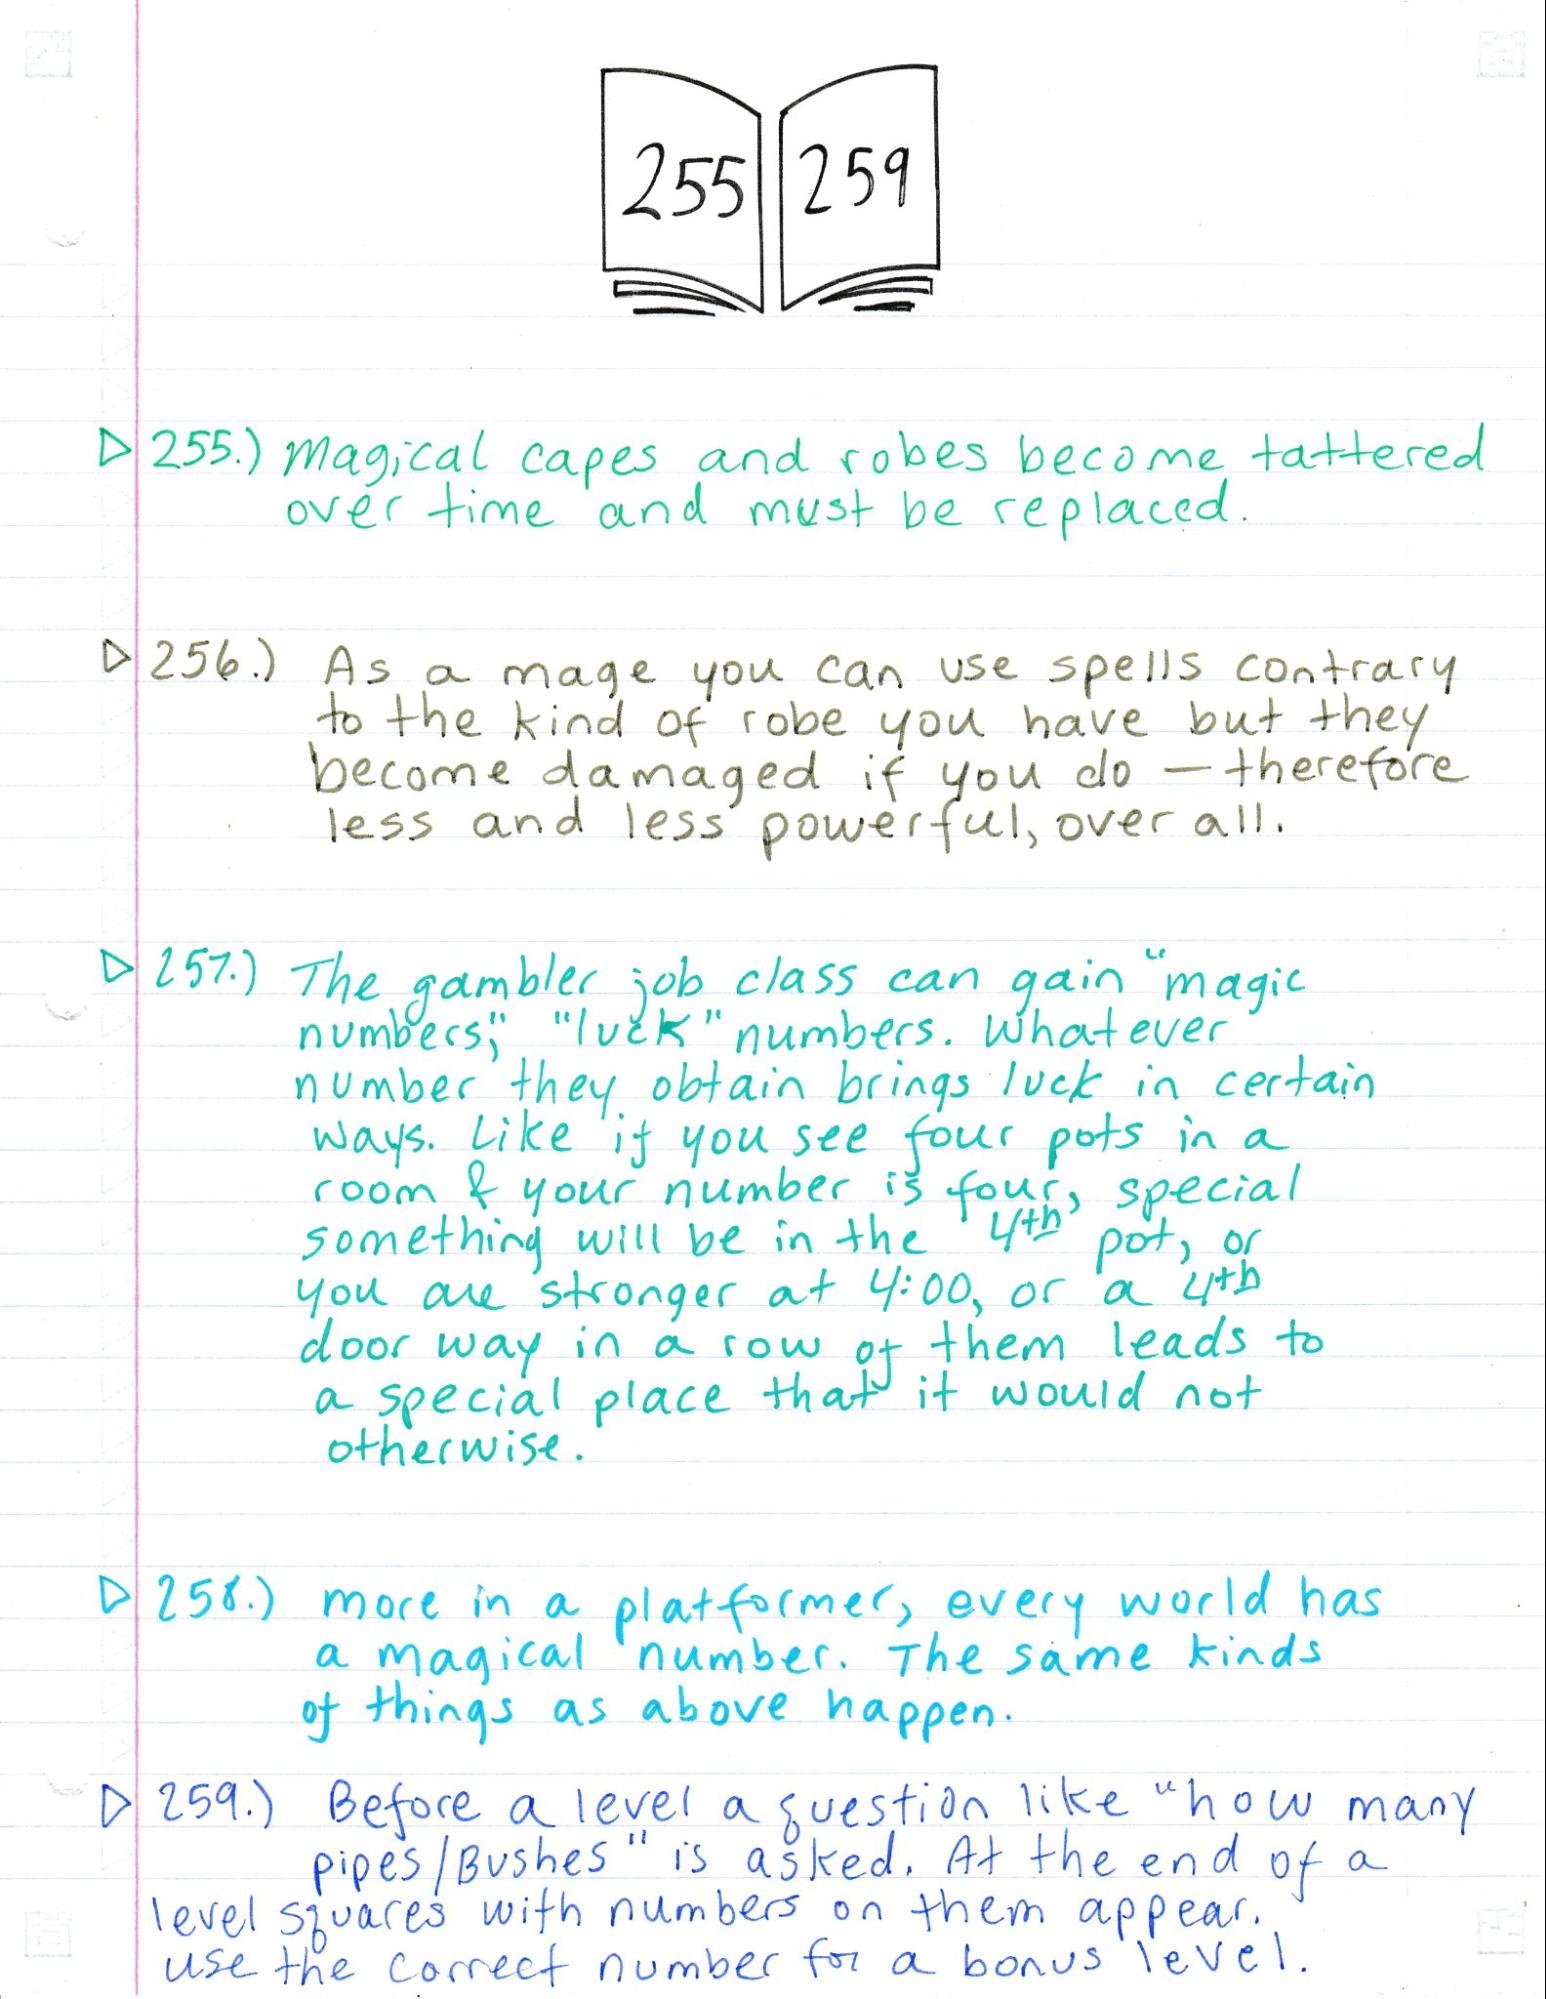 255 259
▷ 255.) Magical capes and robes become tattered
over time and must be replaced.
▷ 256.) As a mage you can use spells contrary
to the kind of robe you have but they
become damaged if you do — therefore
less and less powerful, over all.
▷ 257.) The gambler job class can gain "magic
numbers," "luck" numbers. Whatever
number they obtain brings luck in certain
ways. Like if you see four pots in a
room & your number is four, special
something will be in the 4th pot, or
you are stronger at 4:00, or a 4th
door way in a row of them leads to
a special place that it would not
otherwise.
▷ 258.) more in a platformer, every world has
a magical number. The same kinds
of things as above happen.
▷ 259.) Before a level a question like "how many
pipes/Bushes" is asked. At the end of a
level squares with numbers on them appear.
use the correct number for a bonus level.